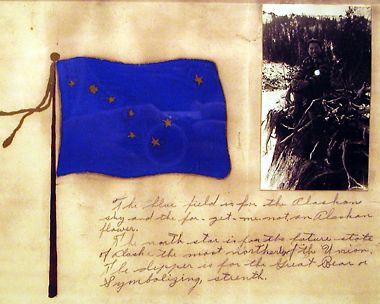 The blue field is for the Alaskan
sky and the for-get-me-not, an Alaskan
flower.
The north star is for the future state
of Alaska the most northerly of the Union.
The dipper is for the Great Bear
Symboliging, strenth.